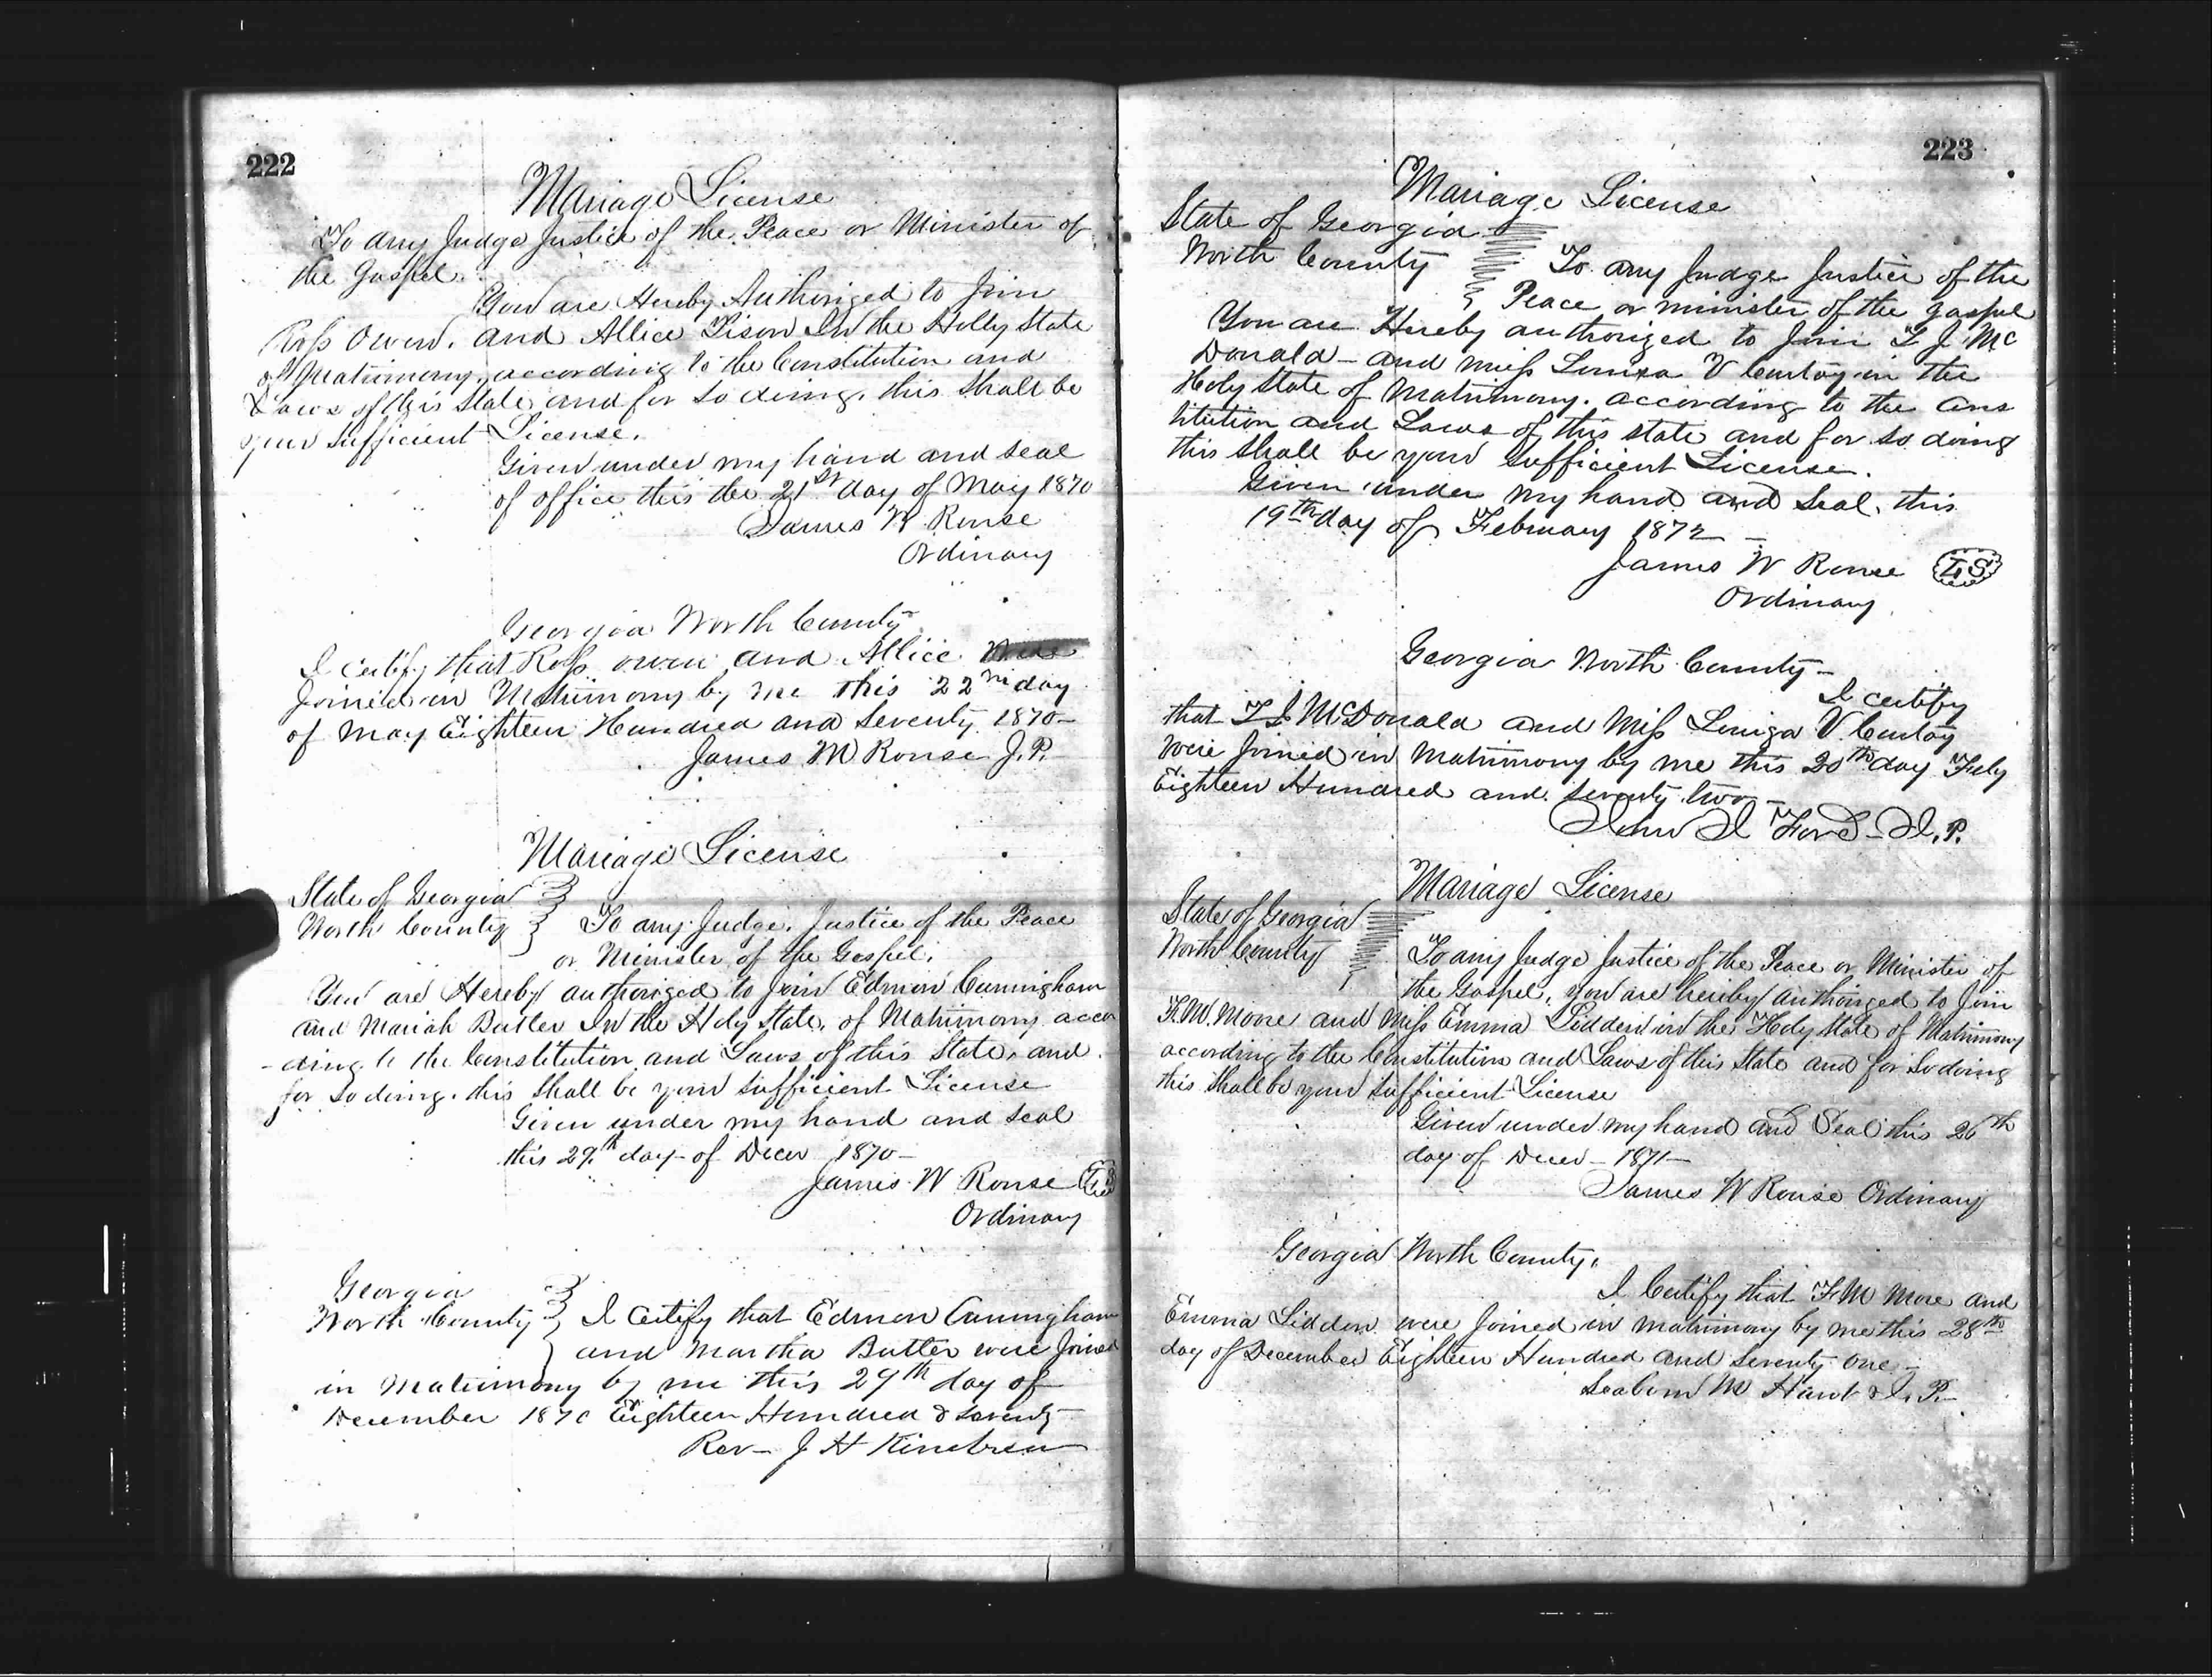 222
Mariage License
To any Judge Justice of the Peace or Minister of
the Gospel.
You are Hereby Authorized to Join
Ross Owen. and Allice Tison In the Holly State
of Matrimony, according to the Constitution and
Laws of this State, and for so doing, this Shall be
your Sufficient License.
Given under my hand and seal
of office this the 21st day of May 1870
James W Rouse
Ordinary
Georgia Worth County
I certify that Ross owen and Allice Were
Joined in Matrimony by me this 22nd day
of May Eighteen Hundred and Seventy 1870-
James M Rouse J.P.
Mariage License
State of Georgia
Worth County
To any Judge. Justice of the Peace
or Minister of the Gospel.
You are Hereby authorized to join Edmon Cunningham
and Mariah Butler In the Holy State, of Matrimony accor
-ding to the Constitution and Laws of this State, and
for so doing. this Shall be your Sufficient License
Given under my hand and seal
this 29th day of Decer 1870-
James W Rouse LS
Ordinary
Georgia
Worth County
I Certify that Edmon Cunningham
and Martha Butler were Joined
in Matrimony by me this 29th day of
December 1870 Eighteen Hundred & Seventy
Rev- J H
223
Mariage License
State of Georgia
Worth County
To any Judge Justice of the
Peace or minister of the gospel
You are Hereby authorized to Join T J Mc
Donald - and miss Louiza V in the
Holy State of Matrimony. according to the Cons
titution and Laws of this state and for so doing
this Shall be your Sufficient License.
Given under my hand and Seal, this
19th day of February 1872 -
James W Rouse LS
Ordinary
Georgia Worth County -
I certify
that T J McDonald and Miss Louiza V
were Joined in Matrimony by me this 20th day Feby
Eighteen Hundred and Seventy two -
John J Ford - J.P.
Mariage License
State of Georgia
Worth County
To any Judge Justice of the Peace or Minister of
the Gospel, you are hereby authorized to Join
F.M. Moore and Miss Emma Lidden in the Holy State of Matrimony
according to the Constitution and Laws of this State and for So doing
this Shall be your Sufficient License
Given under my hand and Seal this 26th
day of Decer - 1871 -
James W Rouse Ordinary
Georgia Worth County.
I Certify that F M More and
Emma Lidden were Joined in matrimony by me this 28th
day of December Eighteen Hundred and Seventy One -
Seaborn M J.P.